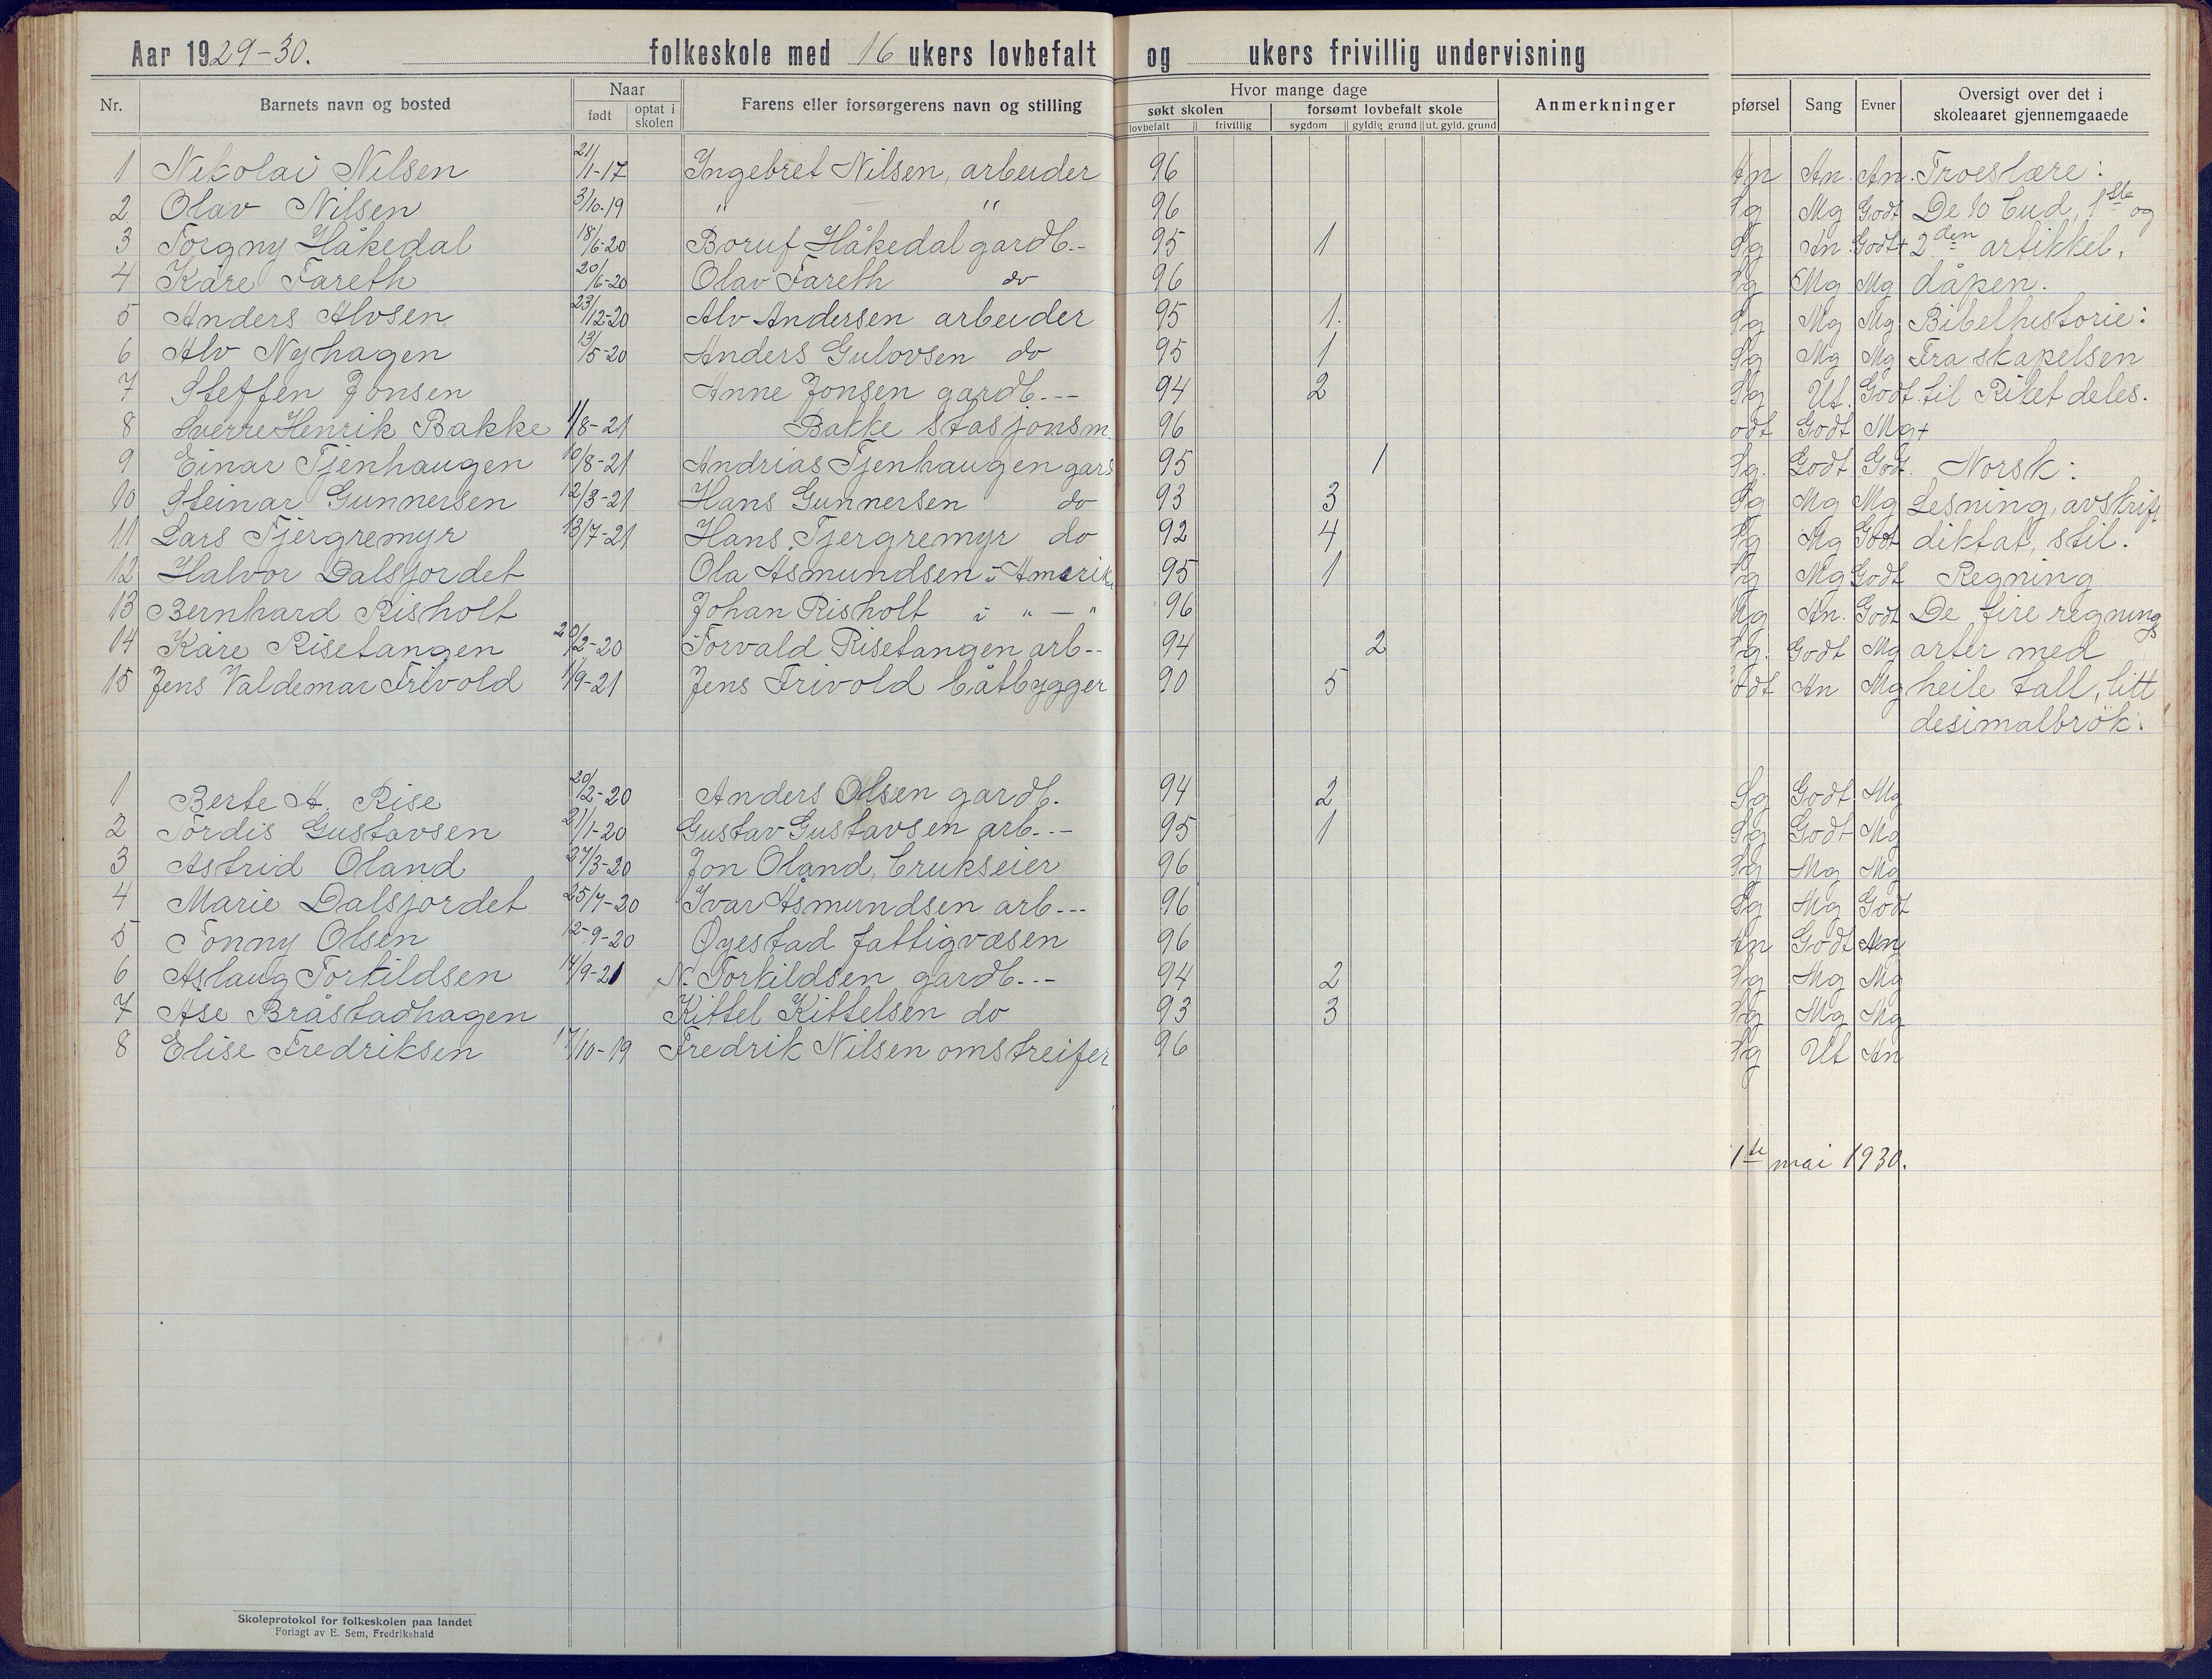 Aar 1929-30. folkeskole med 16 ukers lovbefalt og ukers frivillig undervisning
Nr. Barnets navn og bosted Naar født optat i skolen Farens eller forsørgerens navn og stilling Hvor mange dage søkt skolen lovbefalt frivillig forsømt lovbefalt skole sygdom gyldig grund ut. gyld. grund Anmerkninger pførsel Sang Evner Oversigt over det i skoleaaret gjennemgaaede
1 Nikolai Nilsen 21/1-17 Ingebret Nilsen, arbeider 96 An An. An. Troeslære:
2 Olav Nilsen 3/10-19 " — " 96 Sg Mg Godt De 10 bud, 1ste og
3 Torgny Håkedal 18/6-20 Boruf Håkedal gardb.- 95 1 Sg An Godt+ 2den artikkel,
4 Kåre Fareth 20/6-20 Olav Fareth do 96 Sg Mg Mg dåpen.
5 Anders Alvsen 23/12-20 Alv Andersen arbeider 95 1. Sg Mg Mg Bibelhistorie:
6 Alv Nyhagen 13/5-20 Anders Gulovsen do 95 1 Sg Mg Mg Fra skapelsen
7 Steffen Jonsen Anne Jonsen gardb.-- 94 2 Sg Ut. Godt til Riket deles.
8 Sverre Henrik Bakke 1/8-21 Bakke stasjonsm. 96 odt Godt Mg+
9 Einar Tjenhaugen 10/8-21 Andrias Tjenhaugen gard 95 1 Sg. Godt Godt. Norsk:
10 Steinar Gunnersen 12/3-21 Hans Gunnersen do 93 3 Sg Mg Mg Lesning, avskrift
11 Lars Tjergremyr 13/7-21 Hans Tjergremyr do 92 4 Sg Mg Godt diktat, stil.
12 Halvor Dalsjordet Ola Asmundsen i Amerika 95 1 Sg Mg Godt Regning
13 Bernhard Risholt Johan Risholt i " — " 96 Mg An. Godt De fire regnings
14 Kåre Risetangen 20/2-20 Torvald Risetangen arb-- 94 2 Sg. Godt Mg arter med
15 Jens Valdemar Frivold 1/9-21 Jens Frivold båtbygger 90 5 odt An Mg heile tall, litt
desimalbrøk.
1 Berte A. Rise 20/2-20 Anders Olsen gardb. 94 2 Sg Godt Mg
2 Tordis Gustavsen 21/1-20 Gustav Gustavsen arb.-- 95 1 Sg Godt Mg
3 Astrid Oland 27/3-20 Jon Oland, brukseier 96 Sg Mg Mg
4 Marie Dalsjordet 25/7-20 Ivar Åsmundsen arb--- 96 Sg Mg Godt
5 Tonny Olsen 12-9-20 Øyestad fattigvæsen 96 An Godt An
6 Aslaug Torkildsen 14/9-21 N. Torkildsen gardb.-- 94 2 Sg Mg Mg
7 Åse Bråstadhagen Kittel Kittelsen do 93 3 Sg Mg Mg
8 Elise Fredriksen 17/10-19 Fredrik Nilsen omstreifer 96 Sg Ut An
1ste mai 1930.
Skoleprotokol for folkeskolen paa landet
Forlagt av E. Sem, Fredrikshald